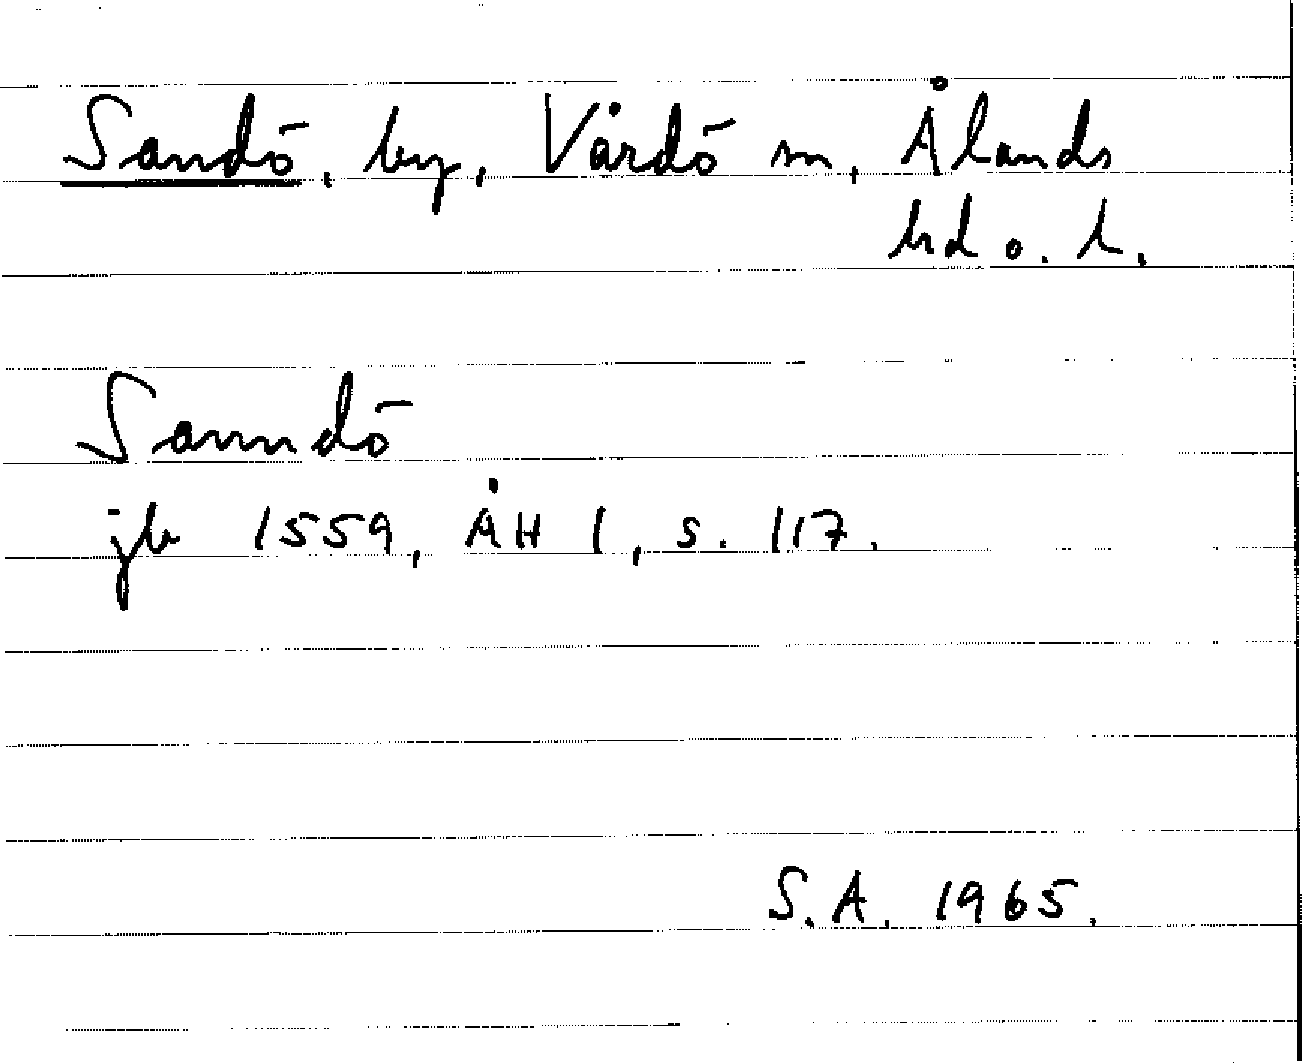 Sandö, by, Vårdö sn, Ålands
hd o. l.
Sanndö
jb 1559, ÅH 1, s. 117.
S.A. 1965.